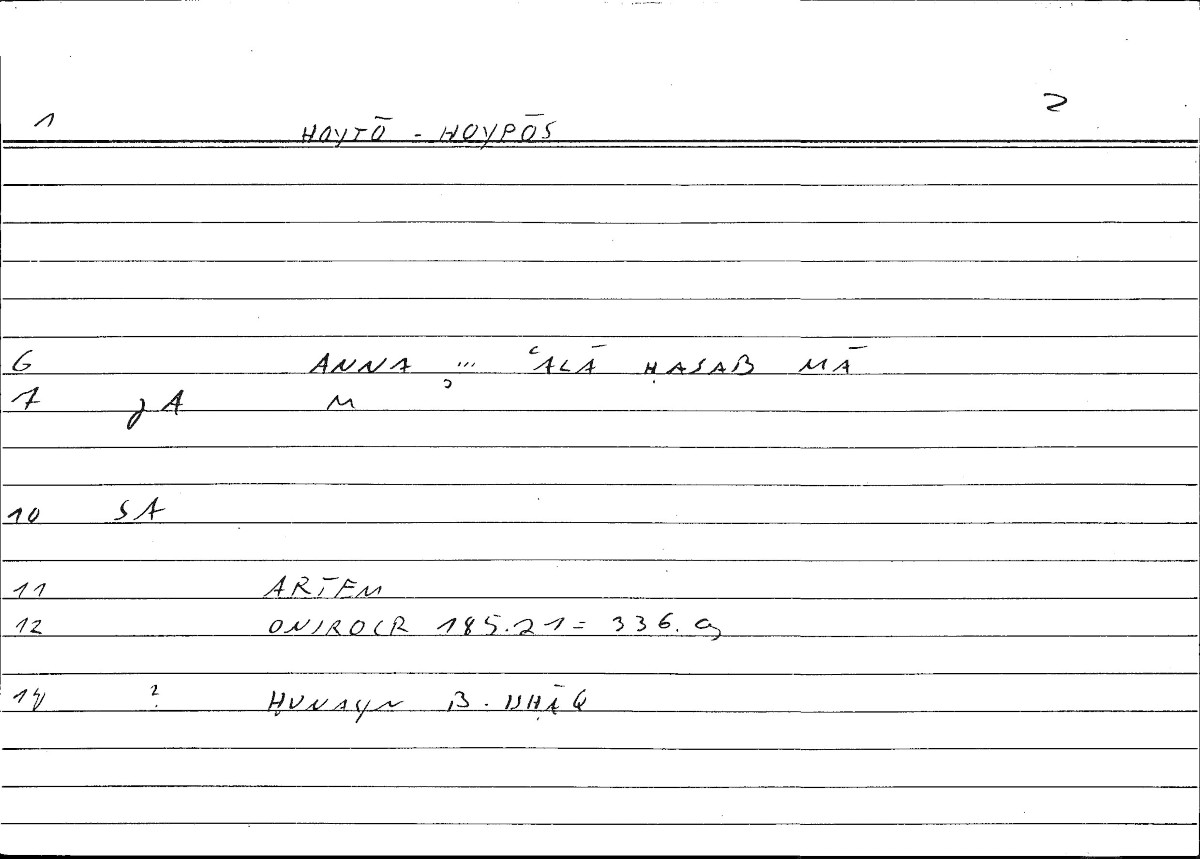 2
1 HOYTŌ - HOYPŌS
6 ANNA ... ʿALĀ ḤASAB MĀ
7 jA M
10 SA
11 ARTEM
12 ONIROCR 185.21 = 336.9
14 ? ḤUNAYN B. ISḤĀQ